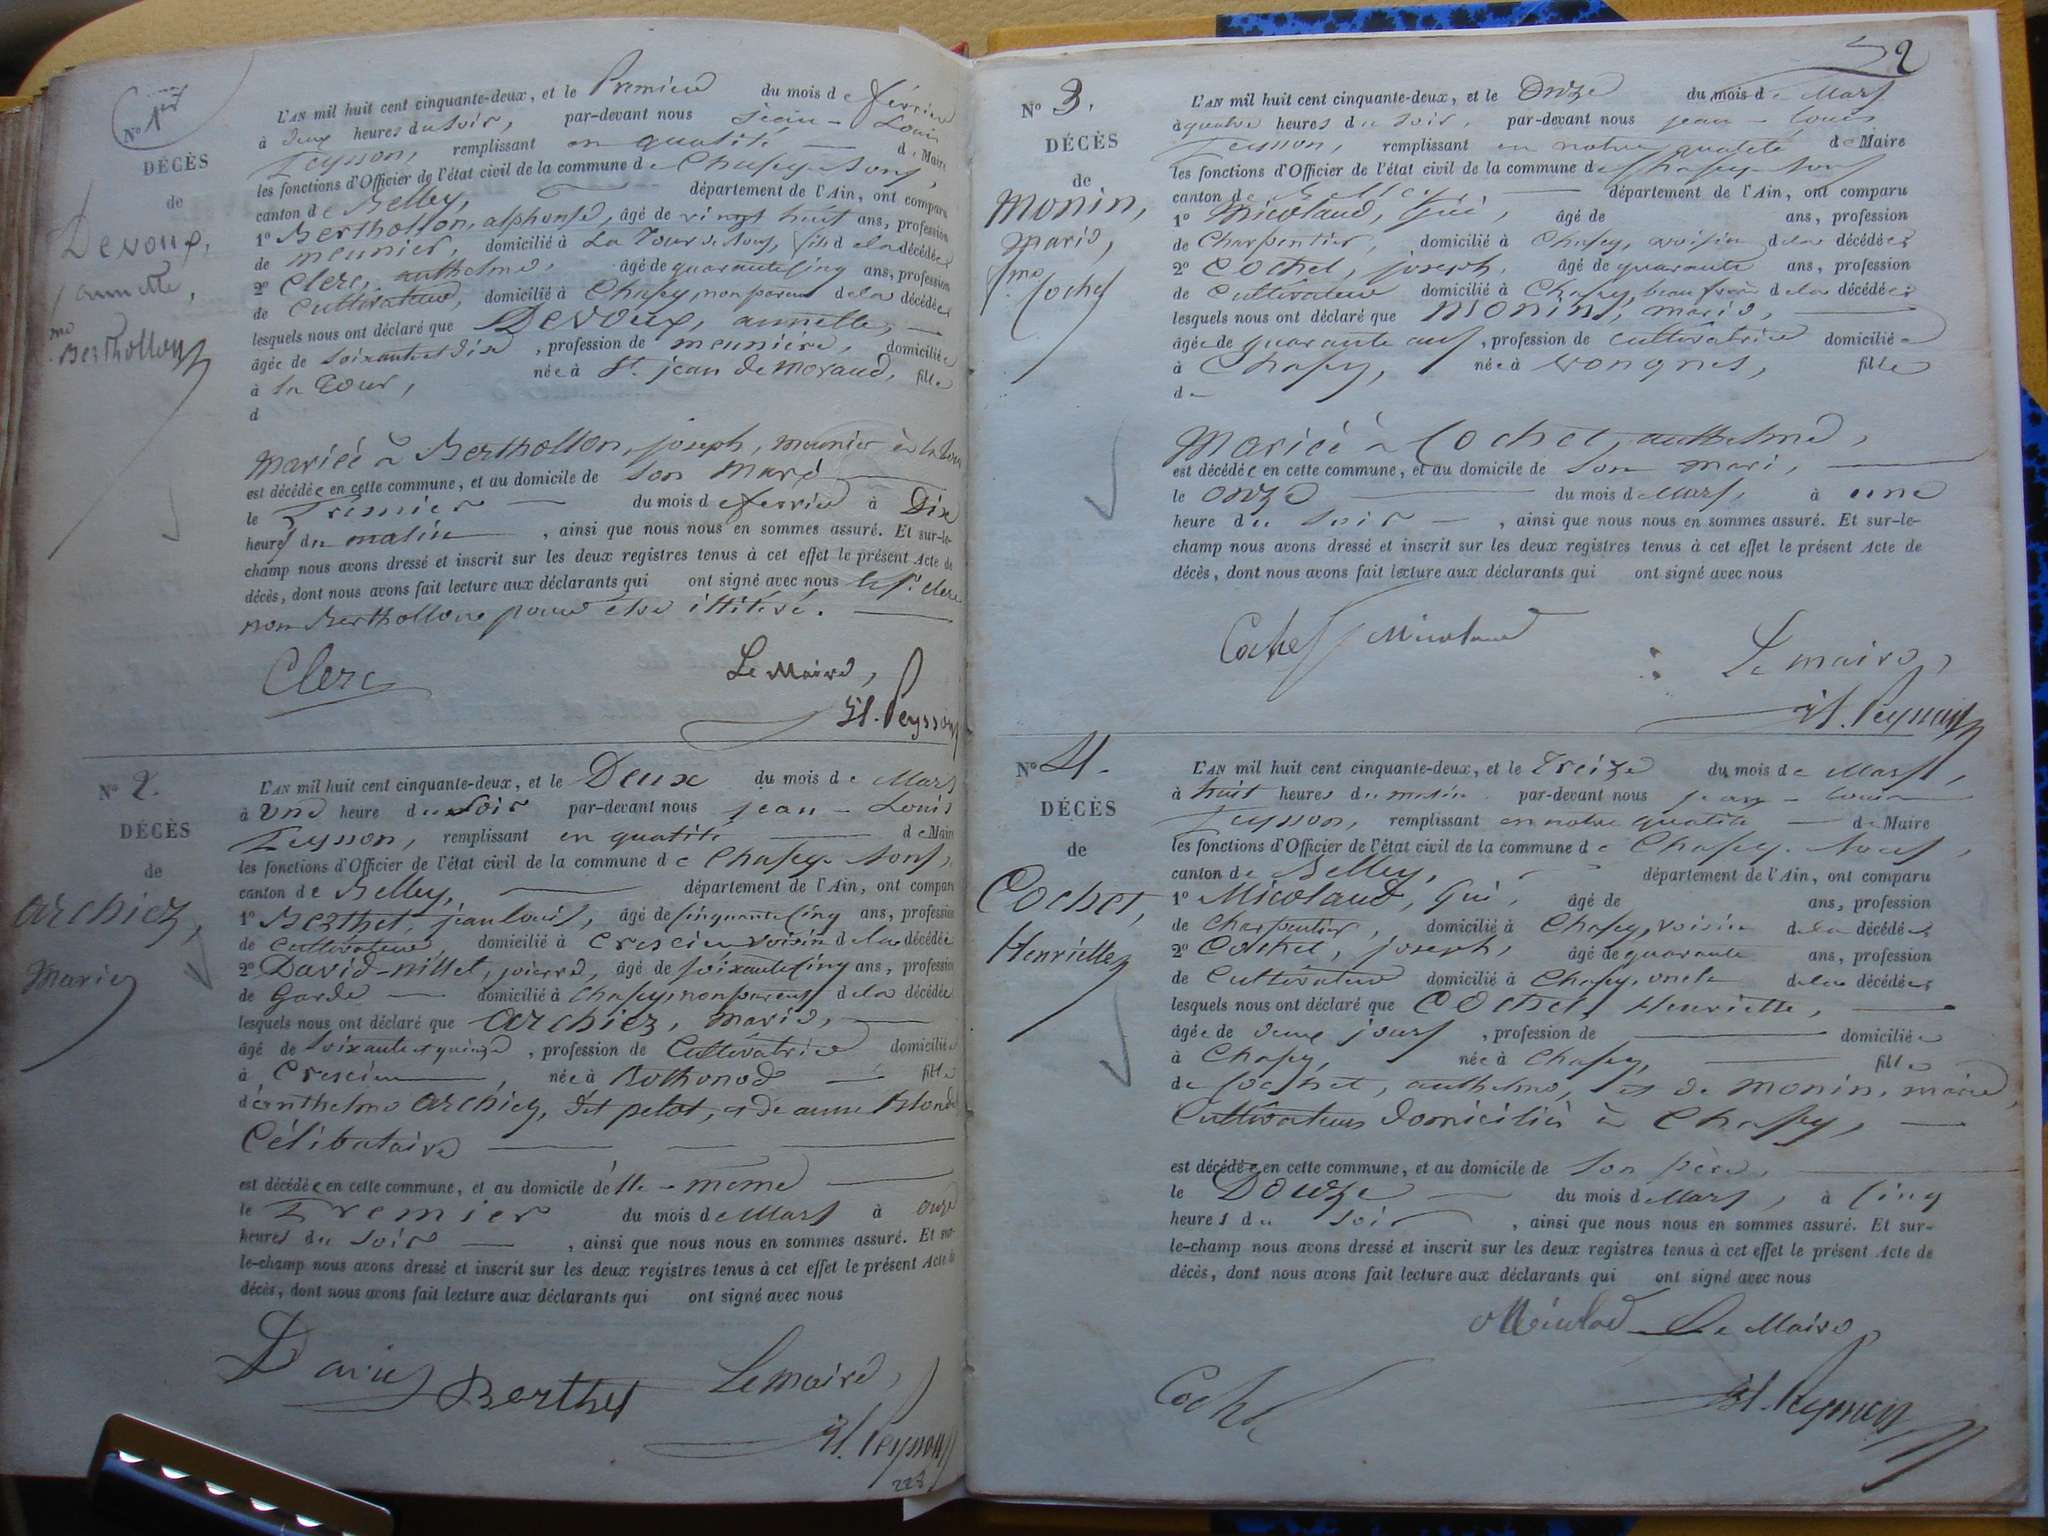 N° 1er
DÉCÈS
de
Devoux,
annette,
me
Berthollon
L'AN mil huit cent cinquante-deux, et le Premier du mois de février
à deux heures du soir, par-devant nous jean-Louis
Peysson, remplissant en qualité de Maire
les fonctions d'Officier de l'état civil de la commune de Chasey-Bons,
canton de Belley, département de l'Ain, ont comparu
1° Berthollon, alphonse, âgé de vingt huit ans, profession
de meunier, domicilié à La Tour de Bons, fils de la décédée
2° Clerc, anthelme, âgé de quarante cinq ans, profession
de Cultivateur, domicilié à Chasey, non parent de la décédée
lesquels nous ont déclaré que Devoux, annette,
âgée de soixante et dix, profession de meunière, domiciliée
à la Tour, née à St. jean de Moraud, fille
d
Mariée à Berthollon, joseph, meunier à la Tour
est décédée en cette commune, et au domicile de son mari
le Premier du mois de février à Dix
heures du matin, ainsi que nous nous en sommes assuré. Et sur-le-
champ nous avons dressé et inscrit sur les deux registres tenus à cet effet le présent Acte de
décès, dont nous avons fait lecture aux déclarants qui ont signé avec nous le sr. clerc
non Berthollon pour etre illitéré.
Clerc Le Maire,
Jl. Peysson
N° 2.
DÉCÈS
de
Archiez,
Marie
L'AN mil huit cent cinquante-deux, et le Deux du mois de Mars
à une heure du soir par-devant nous jean-Louis
Peysson, remplissant en qualité de Maire
les fonctions d'Officier de l'état civil de la commune de Chasey-Bons,
canton de Belley, département de l'Ain, ont comparu
1° Berthet, jean Louis, âgé de cinquante cinq ans, profession
de Cultivateur, domicilié à Crescieu voisin de la décédée
2° David-nillet, pierre, âgé de soixante cinq ans, profession
de Garde domicilié à Chasey, non parent de la décédée
lesquels nous ont déclaré que Archiez, marie,
âgé de soixante et quinze, profession de Cultivatrice domiciliée
à Crescieu, née à Bothonod fille
d'anthelme Archiez, dit pelot, et de anne Blond
Célibataire
est décédée en cette commune, et au domicile d'elle-même
le Premier du mois de Mars à onze
heures du soir, ainsi que nous nous en sommes assuré. Et sur-
le-champ nous avons dressé et inscrit sur les deux registres tenus à cet effet le présent Acte de
décès, dont nous avons fait lecture aux déclarants qui ont signé avec nous
David Berthet Le maire,
Jl. Peysson
228
2
N° 3.
DÉCÈS
de
Monin,
marie,
fme Cochet
L'AN mil huit cent cinquante-deux, et le Onze du mois de Mars
à quatre heures du soir, par-devant nous jean-Louis
Peysson, remplissant en notre qualité de Maire
les fonctions d'Officier de l'état civil de la commune de Chasey-Bons
canton de Belley département de l'Ain, ont comparu
1° Micolaud, Gui, âgé de ans, profession
de Charpentier, domicilié à Chasey, voisin de la décédée
2° Cochet, joseph, âgé de quarante ans, profession
de Cultivateur domicilié à Chasey, beau frère de la décédée
lesquels nous ont déclaré que Monin, marie,
âgée de quarante ans, profession de cultivatrice domiciliée
à Chasey, née à Vongnes, fille
de
Mariée à Cochet, anthelme,
est décédée en cette commune, et au domicile de son mari,
le onze du mois de Mars, à une
heure du soir, ainsi que nous nous en sommes assuré. Et sur-le-
champ nous avons dressé et inscrit sur les deux registres tenus à cet effet le présent Acte de
décès, dont nous avons fait lecture aux déclarants qui ont signé avec nous
Cochet Micolaud Le maire,
Jl. Peysson
N° 4.
DÉCÈS
de
Cochet,
Henriette
L'AN mil huit cent cinquante-deux, et le Treize du mois de Mars,
à huit heures du matin par-devant nous jean-Louis
Peysson, remplissant en notre qualité de Maire
les fonctions d'Officier de l'état civil de la commune de Chasey-Bons,
canton de Belley, département de l'Ain, ont comparu
1° Micolaud, Gui, âgé de ans, profession
de Charpentier, domicilié à Chasey, voisin de la décédée
2° Cochet, joseph, âgé de quarante ans, profession
de Cultivateur domicilié à Chasey, oncle de la décédée
lesquels nous ont déclaré que Cochet, Henriette,
âgée de deux jours, profession de domiciliée
à Chasey, née à Chasey, fille
de Cochet, anthelme, et de Monin, marie,
Cultivateurs domiciliés à Chasey,
est décédée en cette commune, et au domicile de son père,
le Douze du mois de Mars, à cinq
heures du soir, ainsi que nous nous en sommes assuré. Et sur-
le-champ nous avons dressé et inscrit sur les deux registres tenus à cet effet le présent Acte de
décès, dont nous avons fait lecture aux déclarants qui ont signé avec nous
Micolad Le Maire,
Cochet Jl. Peysson